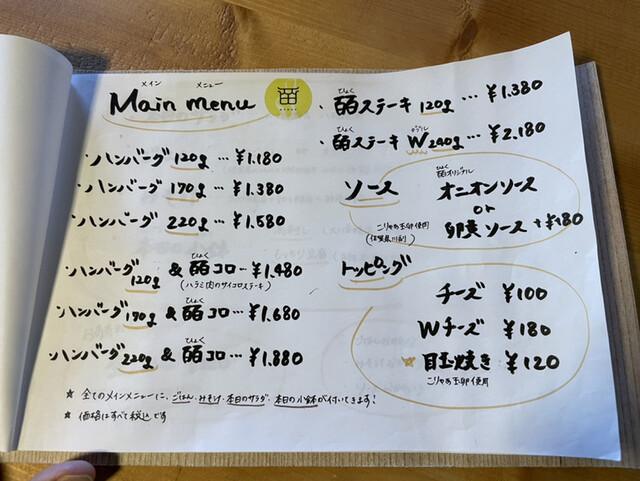 メイン メニュー
Main menu
・ハンバーグ 120g … ¥1.180
・ハンバーグ 170g … ¥1.380
・ハンバーグ 220g … ¥1.580
・ハンバーグ 120g & 皕コロ … ¥1.480
(ハラミ肉のサイコロステーキ)
・ハンバーグ 170g & 皕コロ … ¥1.680
・ハンバーグ 220g & 皕コロ … ¥1.880
★ 全てのメインメニューに、ごはん・みそ汁・本日のサラダ・本日の小鉢が付いてきます!
★ 価格はすべて税込です
・皕ステーキ 120g … ¥1.380
・皕ステーキ W240g … ¥2.180
ソース
皕オリジナル
オニオンソース
or
卵黄ソース +¥180
こりゃあ玉卵使用
トッピング
チーズ ¥100
Wチーズ ¥180
☆ 目玉焼き ¥120
こりゃあ玉卵使用